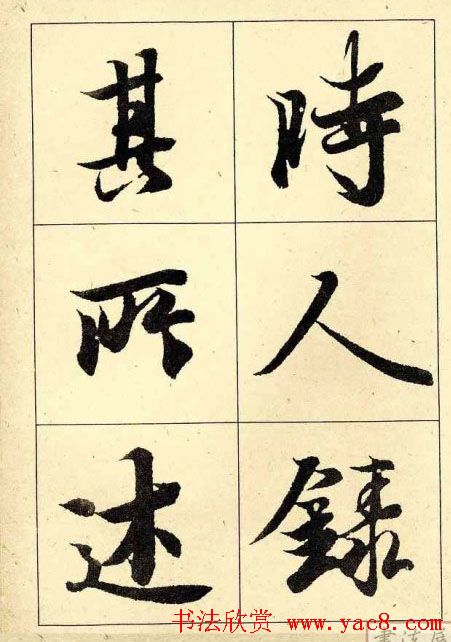 時人錄
其所述
书法欣赏 www.yac8.com